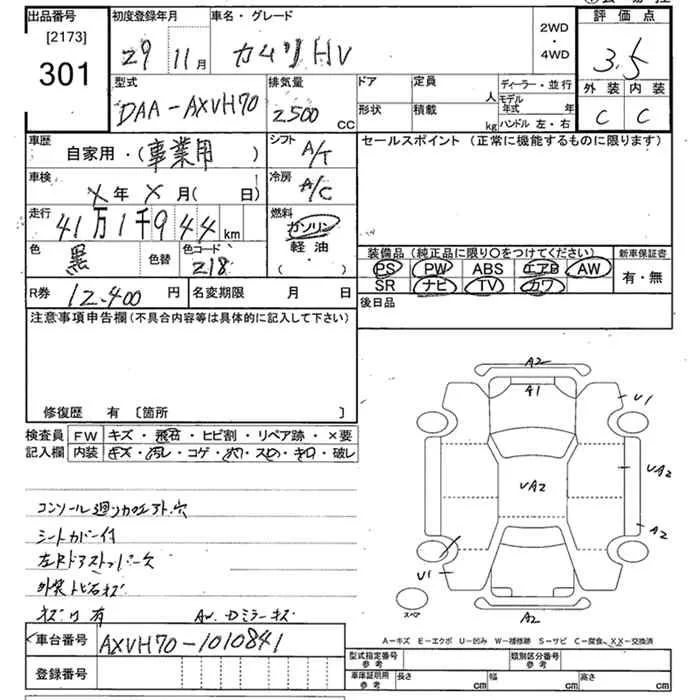 出品番号
[2173]
301
初度登録年月
29 11月
車名・グレード
カムリHV
2WD
・
4WD
評価点
3.5
外装 内装
C C
型式
DAA-AXVH70
排気量
2500
CC
ドア 定員
人
形状 積載
kg
ディーラー・並行
モデル年式 年
ハンドル 左・右
車歴
自家用・(事業用)
シフト
A/T
セールスポイント (正常に機能するものに限ります)
車検
X年X月( 日)
冷房
A/C
走行
41万1千944km
燃料
ガソリン
軽油
( )
色
黒
色替
色コード
218
装備品 (純正品に限り○をつけてください)
PS PW ABS エアB AW
SR ナビ TV カワ
新車保証書
有・無
R券 12,400円
名変期限 月 日
後日品
注意事項申告欄(不具合内容等は具体的に記入して下さい)
修復歴 有 〔箇所 〕
検査員記入欄
FW キズ・飛石・ヒビ割・リペア跡・×要
内装 キズ・汚レ・コゲ・穴・スレ・キロ・破レ
シートカバー付
外装トビ石キズ
有
AW.Dミラーキズ
A2
A1
U1
UA2
UA2
A2
U1
スペア
A2
A-キズ E-エクボ U-凹み W-補修跡 S-サビ C-腐食、XX-交換済
車台番号 AXVH70-1010841
登録番号
型式指定番号 参考
類別区分番号 参考
車庫証明用 参考
長さ cm
幅 cm
高さ cm